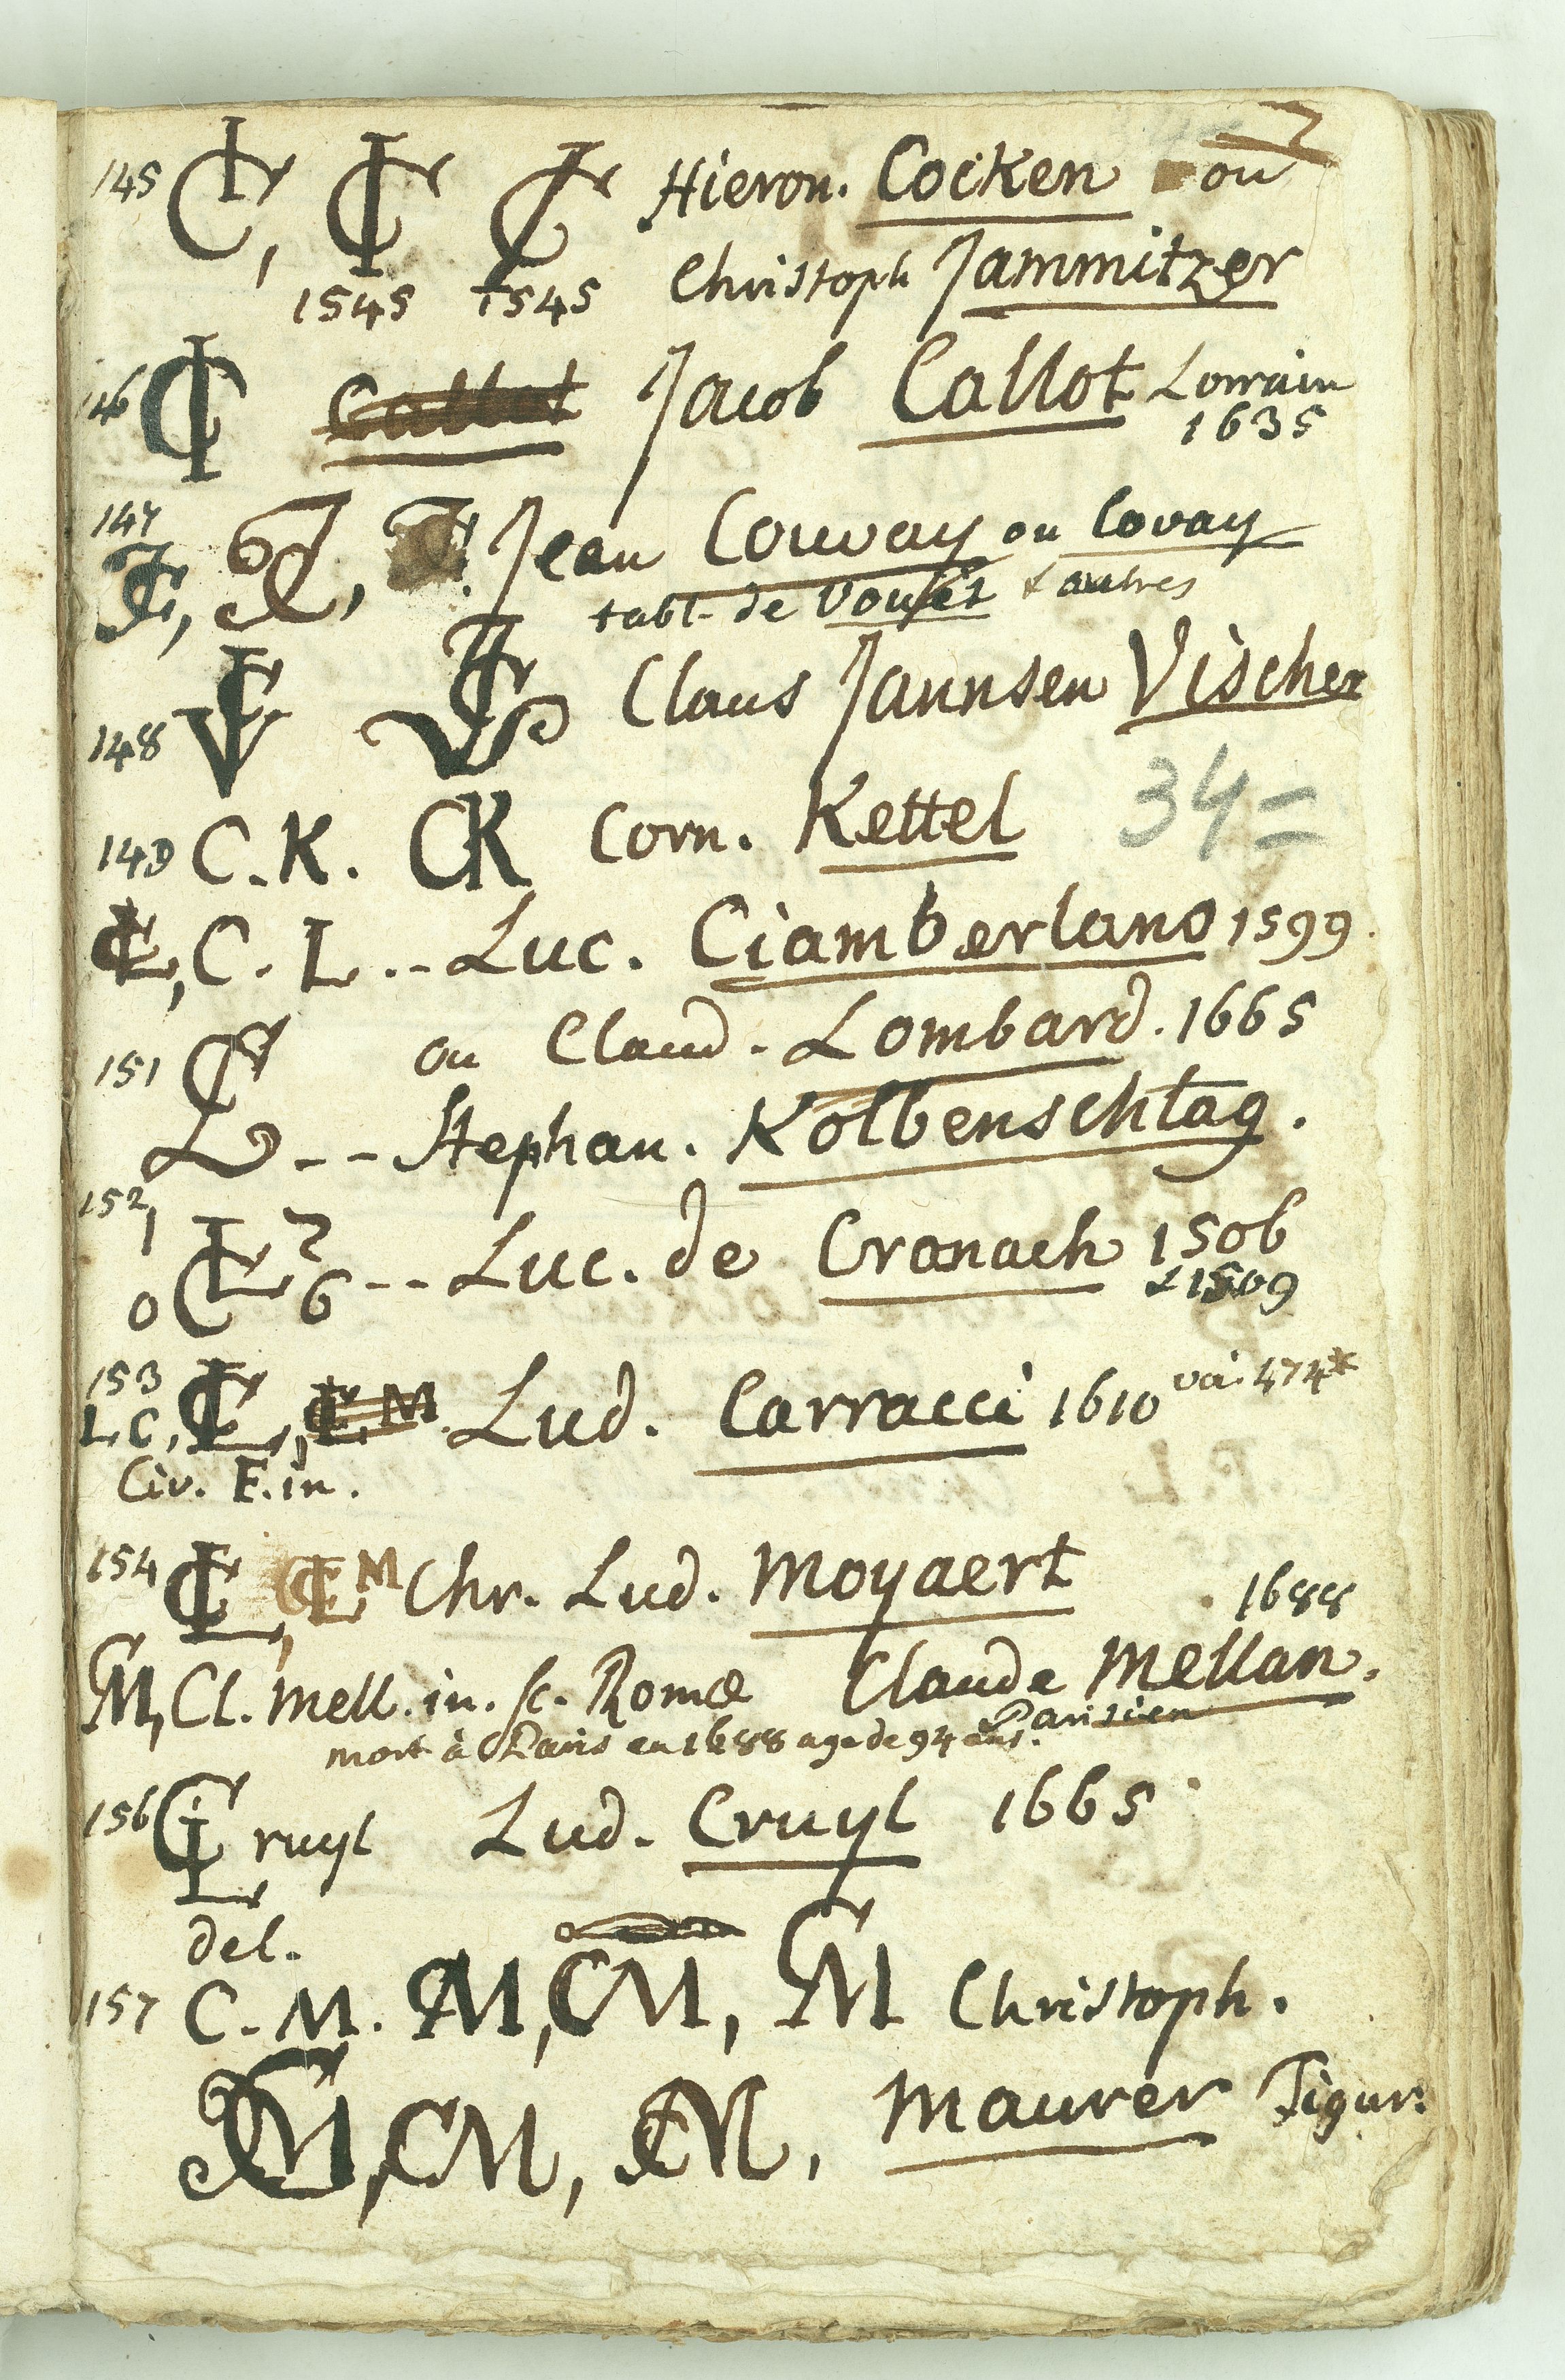 145 IC, IC IC Hieron. Cocken ou
1545 1545 Christoph Jammitzer
146 IC Callot Jacob Callot Lorrain
1635
147 Jean Couvay ou Covay
JC, JC, JC. tabl. de Vouët & autres
148 CIV CIV Claus Jannsen Vischer
149 C. K. CK Corn. Kettel 34=
CL, C. L... Luc. Ciamberlano 1599.
151 CL ou Claud. Lombard. 1665
-- Stephan. Kolbenschlag.
152 1
0 CL 6 -- Luc. de Cranach 1506
& 1509
153
L. C, CL, CL M. Lud. Carracci 1610 voi. 474*
Civ. F. in.
154 CL, CL M Chr. Lud. Moyaert
1688
CM, Cl. Mell. in. sc. Romæ Claude Mellan.
Parisien
mort à Paris en 1688 age de 94 ans.
156 CLruyl Lud. Cruyl 1665
del.
157 C. M. CM, CM, CM Christoph.
CM, CM, CM, Maurer Tigur.